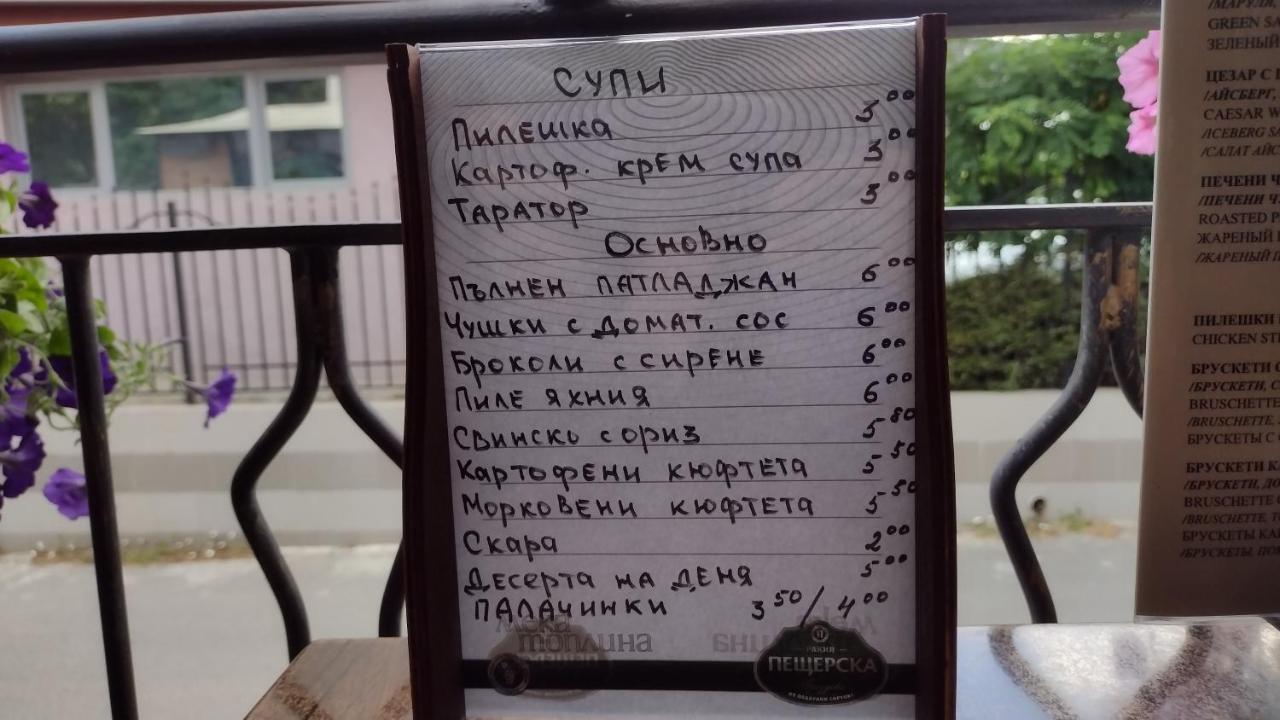 СУПИ
ПИЛЕШКА 3 00
КАРТОФ. КРЕМ СУПА 3 00
ТАРАТОР 3 00
ОСНОВНО
ПЪЛНЕН ПАТЛАДЖАН 6 00
ЧУШКИ С ДОМАТ. СОС 6 00
БРОКОЛИ С СИРЕНЕ 6 00
ПИЛЕ ЯХНИЯ 6 00
СВИНСКО С ОРИЗ 5 80
КАРТОФЕНИ КЮФТЕТА 5 50
МОРКОВЕНИ КЮФТЕТА 5 50
СКАРА 2 00
ДЕСЕРТА НА ДЕНЯ 5 00
ПАЛАЧИНКИ 3 50 / 4 00
топлина
РАКИЯ
ПЕЩЕРСКА
/МАРУЛЯ,
GREEN SA
ЗЕЛЕНЫЙ
ЦЕЗАР С
/АЙСБЕРГ,
CAESAR W
/ICEBERG SA
/САЛАТ АЙС
ПЕЧЕНИ Ч
/ПЕЧЕНИ Ч
ROASTED
ЖАРЕНЫЙ
/ЖАРЕНЫЙ
ПИЛЕШКИ
CHICKEN ST
БРУСКЕТИ С
/БРУСКЕТИ, С
BRUSCHETTE
/BRUSCHETTE,
БРУСКЕТЫ С
БРУСКЕТИ К
/БРУСКЕТИ, ДО
BRUSCHETTE
/BRUSCHETTE, T
БРУСКЕТЫ КА
/БРУСКЕТЫ, ПО